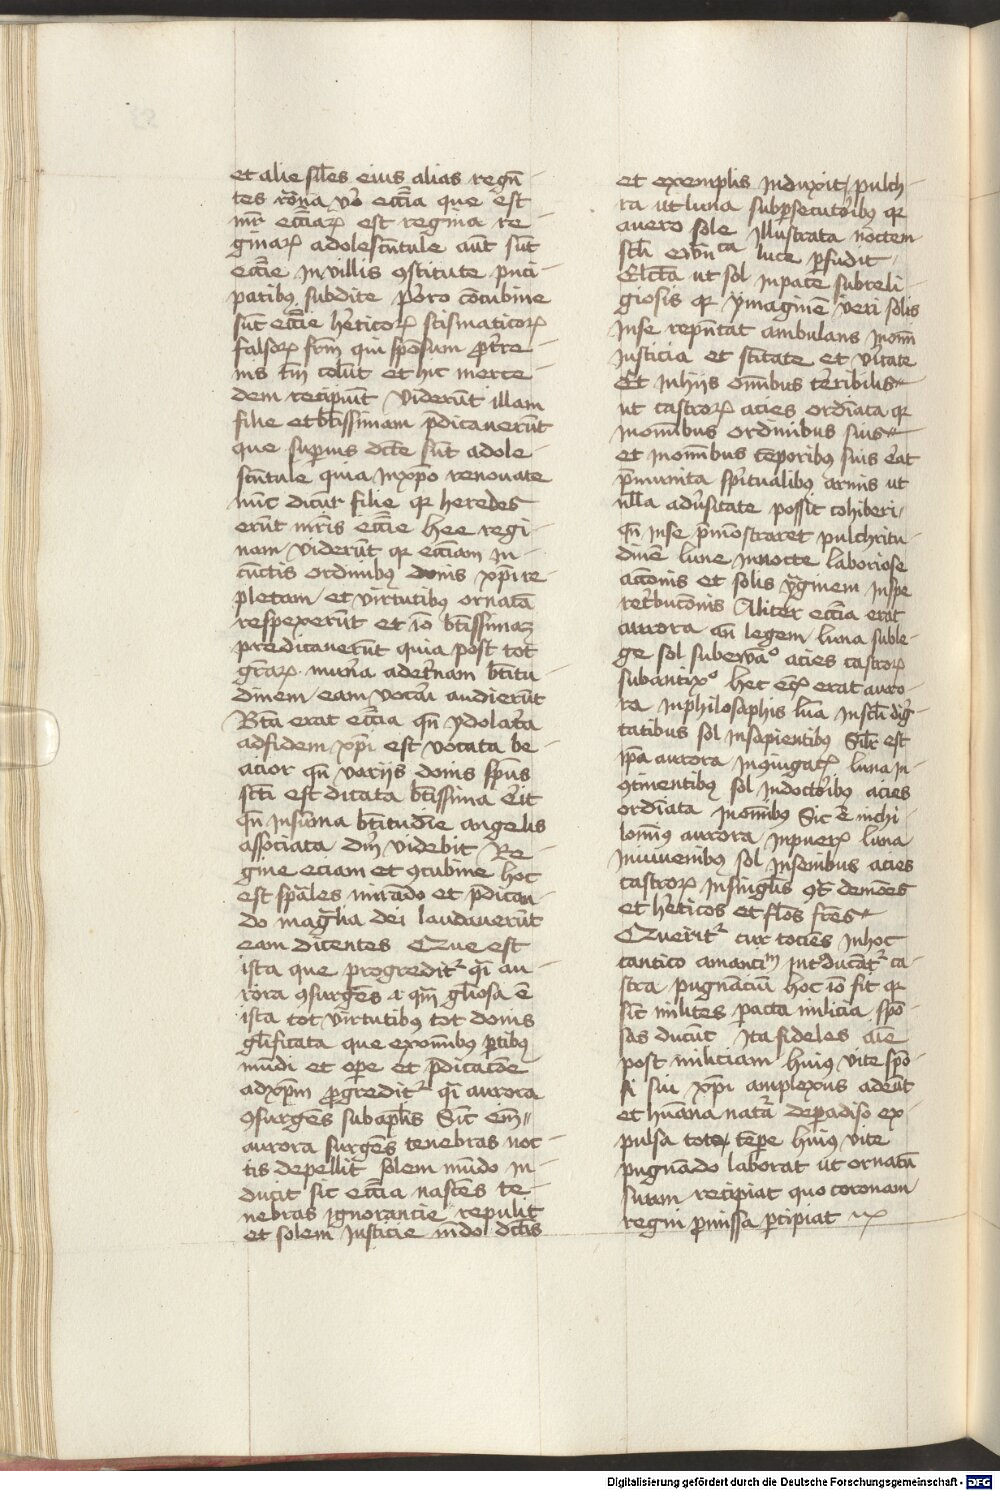 et alie siles eius alias regn̄
tes rōna v̄o eccīa que est
mr̄ eccīaꝝ est regina re
ginaꝝ adolescn̄tule aut̄ sūt
ecc̄ie in villis ꝯstitute pn̄ci
patibꝰ subdite porro cōcubine
sūt ecc̄ie hēticoꝝ scismaticoꝝ
falsoꝝ frm̄ qui spōsum ꝓt̄re
nis tm̄ colūt et hic merce
dem recipiūt viderūt illam
filie et bt̄issimam p̄dicauerūt
que superius dc̄te sūt adole
scn̄tule quia in xp̄o renouate
nūc dicūr filie qꝛ heredes
erūt mr̄is ecc̄ie hee regi
nam viderūt qꝛ ecc̄iam in
cūctis ordinibꝰ donis xp̄i re
pletam et virtutibꝰ ornatā
respexerūt et iō bt̄issimaꝫ
predicauerūt quia post tot
gr̄aꝝ mun̄a adet̄nam bt̄itu
dinem eam vocāi audierūt
Bt̄a erat ecc̄ia qn̄ ydolat̄a
ad fidem xp̄i est vocata be
acior qn̄ varijs donis sp̄us
sc̄ti est dicata bt̄issima erit
qn̄ in sūma bt̄itudīe angelis
associata dm̄ videbit Re
gine eciam et ꝯcubine hoc
est sp̄ales mirādo et p̄dican
do mag̅lia dei laudauerūt
eam dicentes Que est
ista que progreditꝛ q̄i au
rora ꝯsurgēs a qm̄ gl̄iosa ē
ista tot virtutibꝰ tot donis
gl̄ificata que ex om̄ibꝰ ꝑtibꝰ
mūdi et ope et p̄dicacōe
ad xp̄m ꝓgreditꝛ q̄i aurora
ꝯsurgēs sub apl̄is Sic̄ em̄
aurora surgēs tenebras noc
tis depellit solem mūdo in
ducit sic ecc̄ia nascēs te
nebras ignorancie repulit
et solem iusticie mūdo dc̄is
et exemplis induxit pulch
ra ut luna sub ꝑsecutoribꝰ qꝛ
a vero sole illustrata noctem
luce ꝑfudit
Elc̄ta ut sol in pace sub reli
giosis qꝛ ymaginē veri solis
in se repn̄tat ambulans in om̄i
iusticia et sc̄itate et v̄itate
Et in hijs om̄ibus terribilis
ut castroꝝ acies ordīata qꝛ
in om̄ibus ordinibus suis
et in om̄ibus tēporibꝰ suis erat
p̄munita spiritualibꝰ armis ut
nll̄a adūsitate possit cohiberi
qn̄ in se p̄mōstraret pulchritu
dinē lune in nocte laboriose
acc̄onis et solis ymaginem in spe
ret̄buc̄onis Aliter ecc̄ia erat
aurora an̄ legem luna sub le
ge sol sub ewāᵒ acies castroꝝ
sub antixᵒ hec ec̄ erat auro
ra in philosophis lūa in scl̄i dig̅
tatibus sol in sapientibꝰ Silr̄ est
ip̄a aurora in ꝯiugatꝫ luna in
ꝯtinentibꝰ sol in doctoribꝰ acies
ordīata in om̄ibꝰ Sic ē in chi
aurora in pueꝝ luna
in iuuenibꝰ sol in senibus acies
castroꝝ in singl̄is ꝯt̄ demōes
et hēticos et fl̄os fr̄es
Queritꝛ cur tociēs in hoc
cantico amanciᵐ int̓ducāt̄ꝛ ca
stra pugnāciū hoc iō fit qꝛ
sic̄ milites ꝑacta milicia spō
sas ducūt ita fideles aīe
post miliciam huiꝰ vite spō
si sui xp̄i amplexus adeūt
et hūana nat̄a de padiso ex
pulsa toto tēpe huiꝰ vite
pugnādo laborat ut ornatū
suum recipiat quo coronam
regni ꝓmissa ꝑcipiat
Digitalisierung gefördert durch die Deutsche Forschungsgemeinschaft - DFG